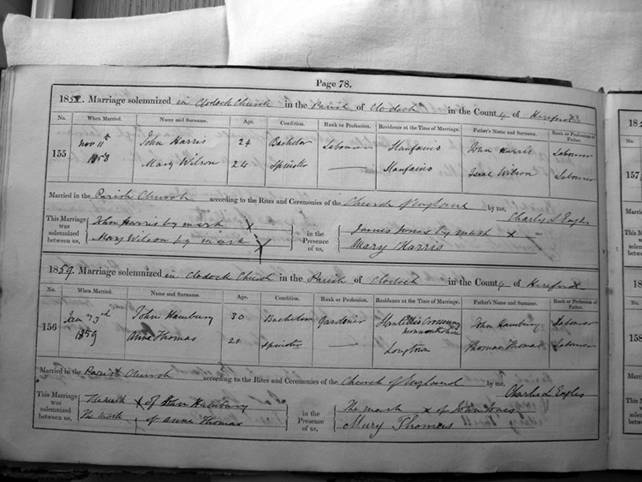 Page 78.
1858. Marriage solemnized in Clodock Church in the Parish of Clodock in the County of Hereford
No. When Married. Name and Surname. Age. Condition. Rank or Profession. Residence at the Time of Marriage. Father's Name and Surname. Rank or Profession of Father.
155 Nov 11th 1858 John Harris 24 Bachelor Labourer Llanfains John Harris Labourer
Mary Wilson 24 Spinster — Llanfains Wilson Labourer
Married in the Parish Church according to the Rites and Ceremonies of the Church of England by me, Charles L Eagles
This Marriage was solemnized between us, John Harris by mark X in the Presence of us, James Jones by mark X
Mary Wilson by mark X Mary Harris
1859. Marriage solemnized in Clodock Church in the Parish of Clodock in the County of Hereford
No. When Married. Name and Surname. Age. Condition. Rank or Profession. Residence at the Time of Marriage. Father's Name and Surname. Rank or Profession of Father.
156 Jan 23rd 1859 John Hambury 30 Bachelor Gardener John Hambury Labourer
Anne Thomas 21 Spinster — Longtown Thomas Thomas Labourer
Married in the Parish Church according to the Rites and Ceremonies of the Church of England by me, Charles L Eagles
This Marriage was solemnized between us, The mark X of John Hambury in the Presence of us, The mark X of John Jones
The mark X of Anne Thomas Mary Thomas
157
158